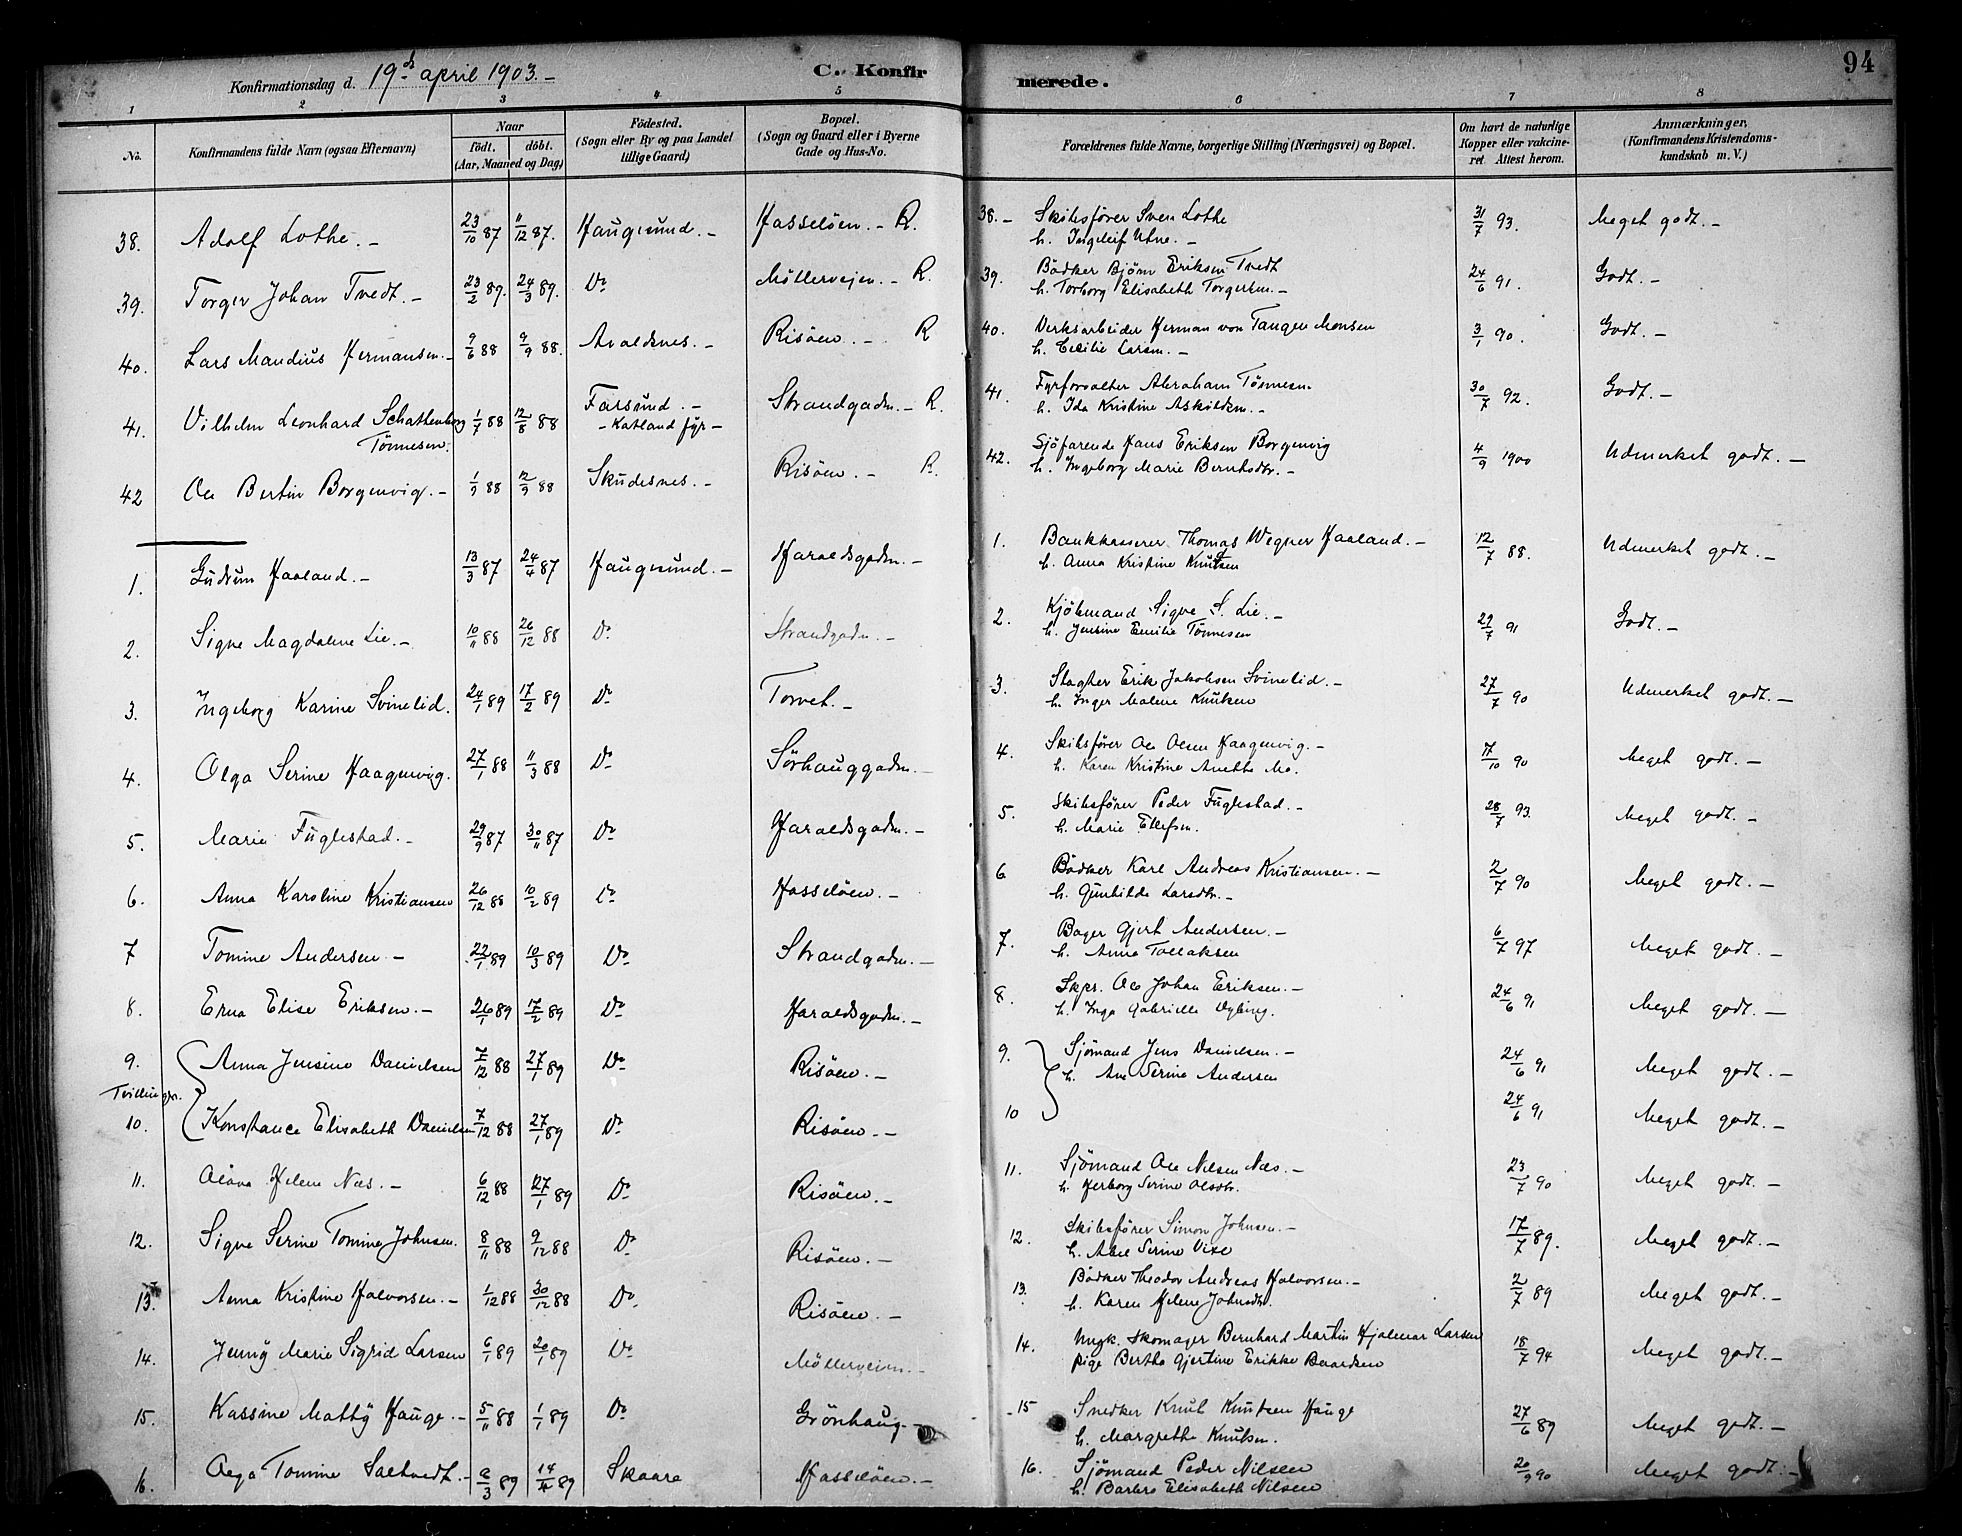 94
Konfirmationsdag d. 19de april 1903.-
C. Konfirmerede.
1 2 3 4 5 6 7 8
No. Konfirmandens fulde Navn (ogsaa Efternavn) Naar födt. döbt. (Aar, Maaned og Dag) Födested. (Sogn eller By og paa Landet tillige Gaard) Bopæl. (Sogn og Gaard eller i Byerne Gade og Hus-No. Forældrenes fulde Navne, borgerlige Stilling (Næringsvei) og Bopæl. Om havt de naturlige Kopper eller vakcineret Attest herom. Anmærkninger, (Konfirmandens Kristendomskundskab m. V.)
38. Adolf Lothe.- 23/10 87 11/12 87. Haugesund.- Hasseløen.- R. 38.- Skibsfører Sven Lothe 31/7 93. Meget godt.-
h. Ingeleif Utne.-
39. Torger Johan Tvedt.- 23/2 89. 24/3 89. Do Möllerveien.- R. 39. Bödker Bjørn Eriksen Tvedt 24/6 91. Godt.-
h. Torborg Elisabeth Torgersen.-
40. Lars Mandius Hermansen.- 9/6 88 9/9 88. Avaldsnes.- Risöen.- R 40. Verksarbeider Herman von Tangen Monsen 3/1 90. Godt.-
h. Cecilie Larsen.-
41. Vilhelm Leonhard Schattenborg Tönnesen. 1/7 88 12/8 88 Farsund.- - Katland fyr - Strandgaden.- R. 41. Fyrforvalter Abraham Tönnesen. 30/7 92. Godt.-
h. Ida Kristine Askildsen.-
42 Ole Bertin Borgenvig.- 1/9 88 12/9 88 Skudesnes.- Risöen.- R. 42. Sjöfarende Hans Eriksen Borgenvig 4/9 1900 Udmerket godt.-
h. Ingeborg Marie Berntsdtr.-
1. Gudrun Haaland.- 13/3 87 24/4 87 Haugesund.- Haraldsgaden.- 1. Bankkasserer Thomas Wegner Haaland.- 12/7 88. Udmerket godt.-
h. Anna Kristine Knutsen
2. Signe Magdalene Lie.- 10/11 88 26/12 88 Do Strandgaden.- 2. Kjöbmand Sigve S. Lie.- 29/7 91 Godt.-
h. Jensine Emilie Tönnesen
3. Ingeborg Karine Svinelid. 24/1 89 17/2 89 Do Torvet.- 3. Slagter Erik Jakobsen Svinelid.- 27/7 90 Udmerket godt.-
h. Inger Malene Knutsen
4. Olga Serine Haagenvig. 27/1 88 11/3 88 Do Sörhauggaden.- 4. Skibsfører Ole Olsen Haagenvig.- 17/10 90 Meget godt.-
h. Karen Kristine Anette Mo.
5. Marie Fuglestad.- 29/9 87 30/11 87 Do Haraldsgaden.- 5. Skibsfører Peder Fuglestad.- 28/7 93. Meget godt.-
h. Marie Ellefsen.
6. Anna Karoline Kristiansen 26/12 88 10/2 89 Do Hasseløen.- 6 Bödker Karl Andreas Kristiansen.- 2/7 90 Meget godt.-
h. Gunhilde Larsdtr.-
7 Tomine Andersen.- 22/1 89 10/3 89 Do Strandgaden.- 7. Bager Gjert Andersen.- 6/7 97 Meget godt.-
h. Anna Tollaksen
8. Erna Elise Eriksen.- 26/1 89 17/2 89 Do Haraldsgaden.- 8. Skpr. Ole Johan Eriksen.- 24/6 91 Meget godt.-
h. Inga Gabrielle Vybing.
9. Anna Jensine Danielsen 7/12 88 27/1 89 Do Risöen.- 9. Sjömand Jens Danielsen.- 24/6 91 Meget godt.-
Tvillinger. h. Ane Serine Andersen
10. Konstance Elisabeth Danielsen 7/12 88 27/1 89 Do Risöen.- 10 24/6 91 Meget godt.-
11. Olava Helene Næs.- 6/12 88 27/1 89 Do Risöen.- 11. Sjömand Ole Nilsen Næs.- 23/7 90 Meget godt.-
h. Herborg Serine Olsdtr.
12. Signe Serine Tomine Johnsen. 8/11 88 9/12 88 Do Risöen.- 12. Skibsfører Simon Johnsen.- 17/7 89. Meget godt.-
h. Abel Serine Vixe
13. Anna Kristine Halvorsen.- 1/12 88 30/12 88 Do Risöen.- 13. Bödker Theodor Andreas Halvorsen.- 2/7 89 Meget godt.-
h. Karen Helene Johnsdtr.
14. Jenny Marie Sigrid Larsen 6/1 89 20/1 89 Do Möllerveien.- 14. Ungk. Skomager Bernhard Martin Hjalmar Larsen 18/7 94 Meget godt.-
pige Bertha Gjertine Erikke Baardsen
15. Kassine Matty Hauge.- 5/11 88 1/1 89 Do Grönhaug.- 15 Snedker Knut Knutsen Hauge 27/6 89 Meget godt.-
h. Margrethe Knutsen.
16. Olga Tomine Saltvedt.- 2/3 89 14/4 89 Skaare Hasseløen.- 16. Sjömand Peder Nilsen 20/9 90 Meget godt.-
h. Barbro Elisabeth Nilsen